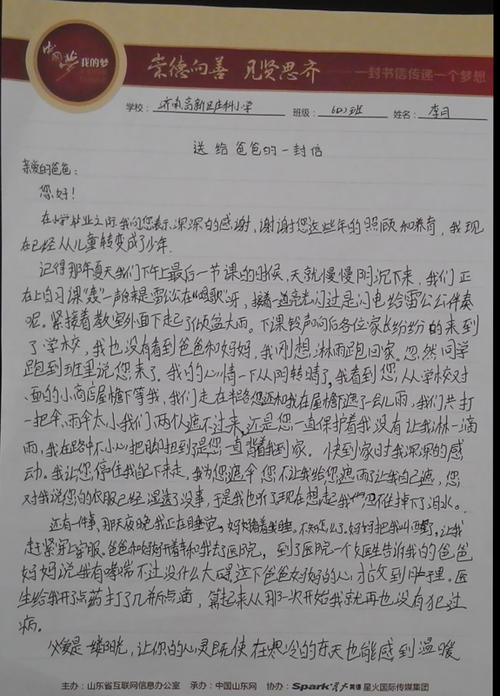 中国梦 我的梦
崇德向善 见贤思齐
一封书信传递一个梦想
学校：济南高新区庄科小学 班级：6(2)班 姓名：李月
送给爸爸的一封信
亲爱的爸爸：
您好！
在小学毕业之际我向您表示深深的感谢，谢谢您这些年的照顾和养育，我现
在已经从儿童转变成了少年。
记得那年夏天我们下午上最后一节课的时候，天就慢慢阴沉下来，我们正
在上自习课"轰"一声 雷公在唱歌呀，接着一道亮光闪过是闪电给雷公公伴奏
呢。紧接着教室外面下起了倾盆大雨。下课铃声响后各位家长纷纷的来到
了学校，我也没有看到爸爸和妈妈，我刚想淋雨跑回家。忽然同学
跑到班里说您来了。我的心情一下从阴转晴了，我看到您，从学校对
面的小商店屋檐下等我，我们走在 您还和我在屋檐下避了一会儿雨，我们共打
一把伞，雨伞太小我们两个遮不过来，还是您一直保护着我没有让我淋一滴
雨，我在路中不小心把脚扭到了是您一直背着我到家。快到家时我深深的感
动。我让您停住我 下来走，我为您遮伞您不让我给您遮雨了让我自己遮，您
对我说您的衣服已经湿透了没事，于是我也听了现在想起我 忍不住掉下了泪水。
还有一件事，那天夜晚我正在睡觉， 妈妈把我叫醒了，让我
赶紧穿上穿服。爸爸和妈妈开着车和我去了医院，到了医院一个女医生告诉我的爸爸
妈妈说我有哮喘不过没什么大碍这下爸爸妈妈的心才放到肚子里。医
生给我开了点药打了几瓶点滴，算起来从那一次开始我就再也没有犯过
病。
父爱是一缕阳光，让你的心灵既使在寒冷的冬天也能感到温暖
主办：山东省互联网信息办公室 承办：中国山东网 协办：Spark星火英语 星火国际传媒集团